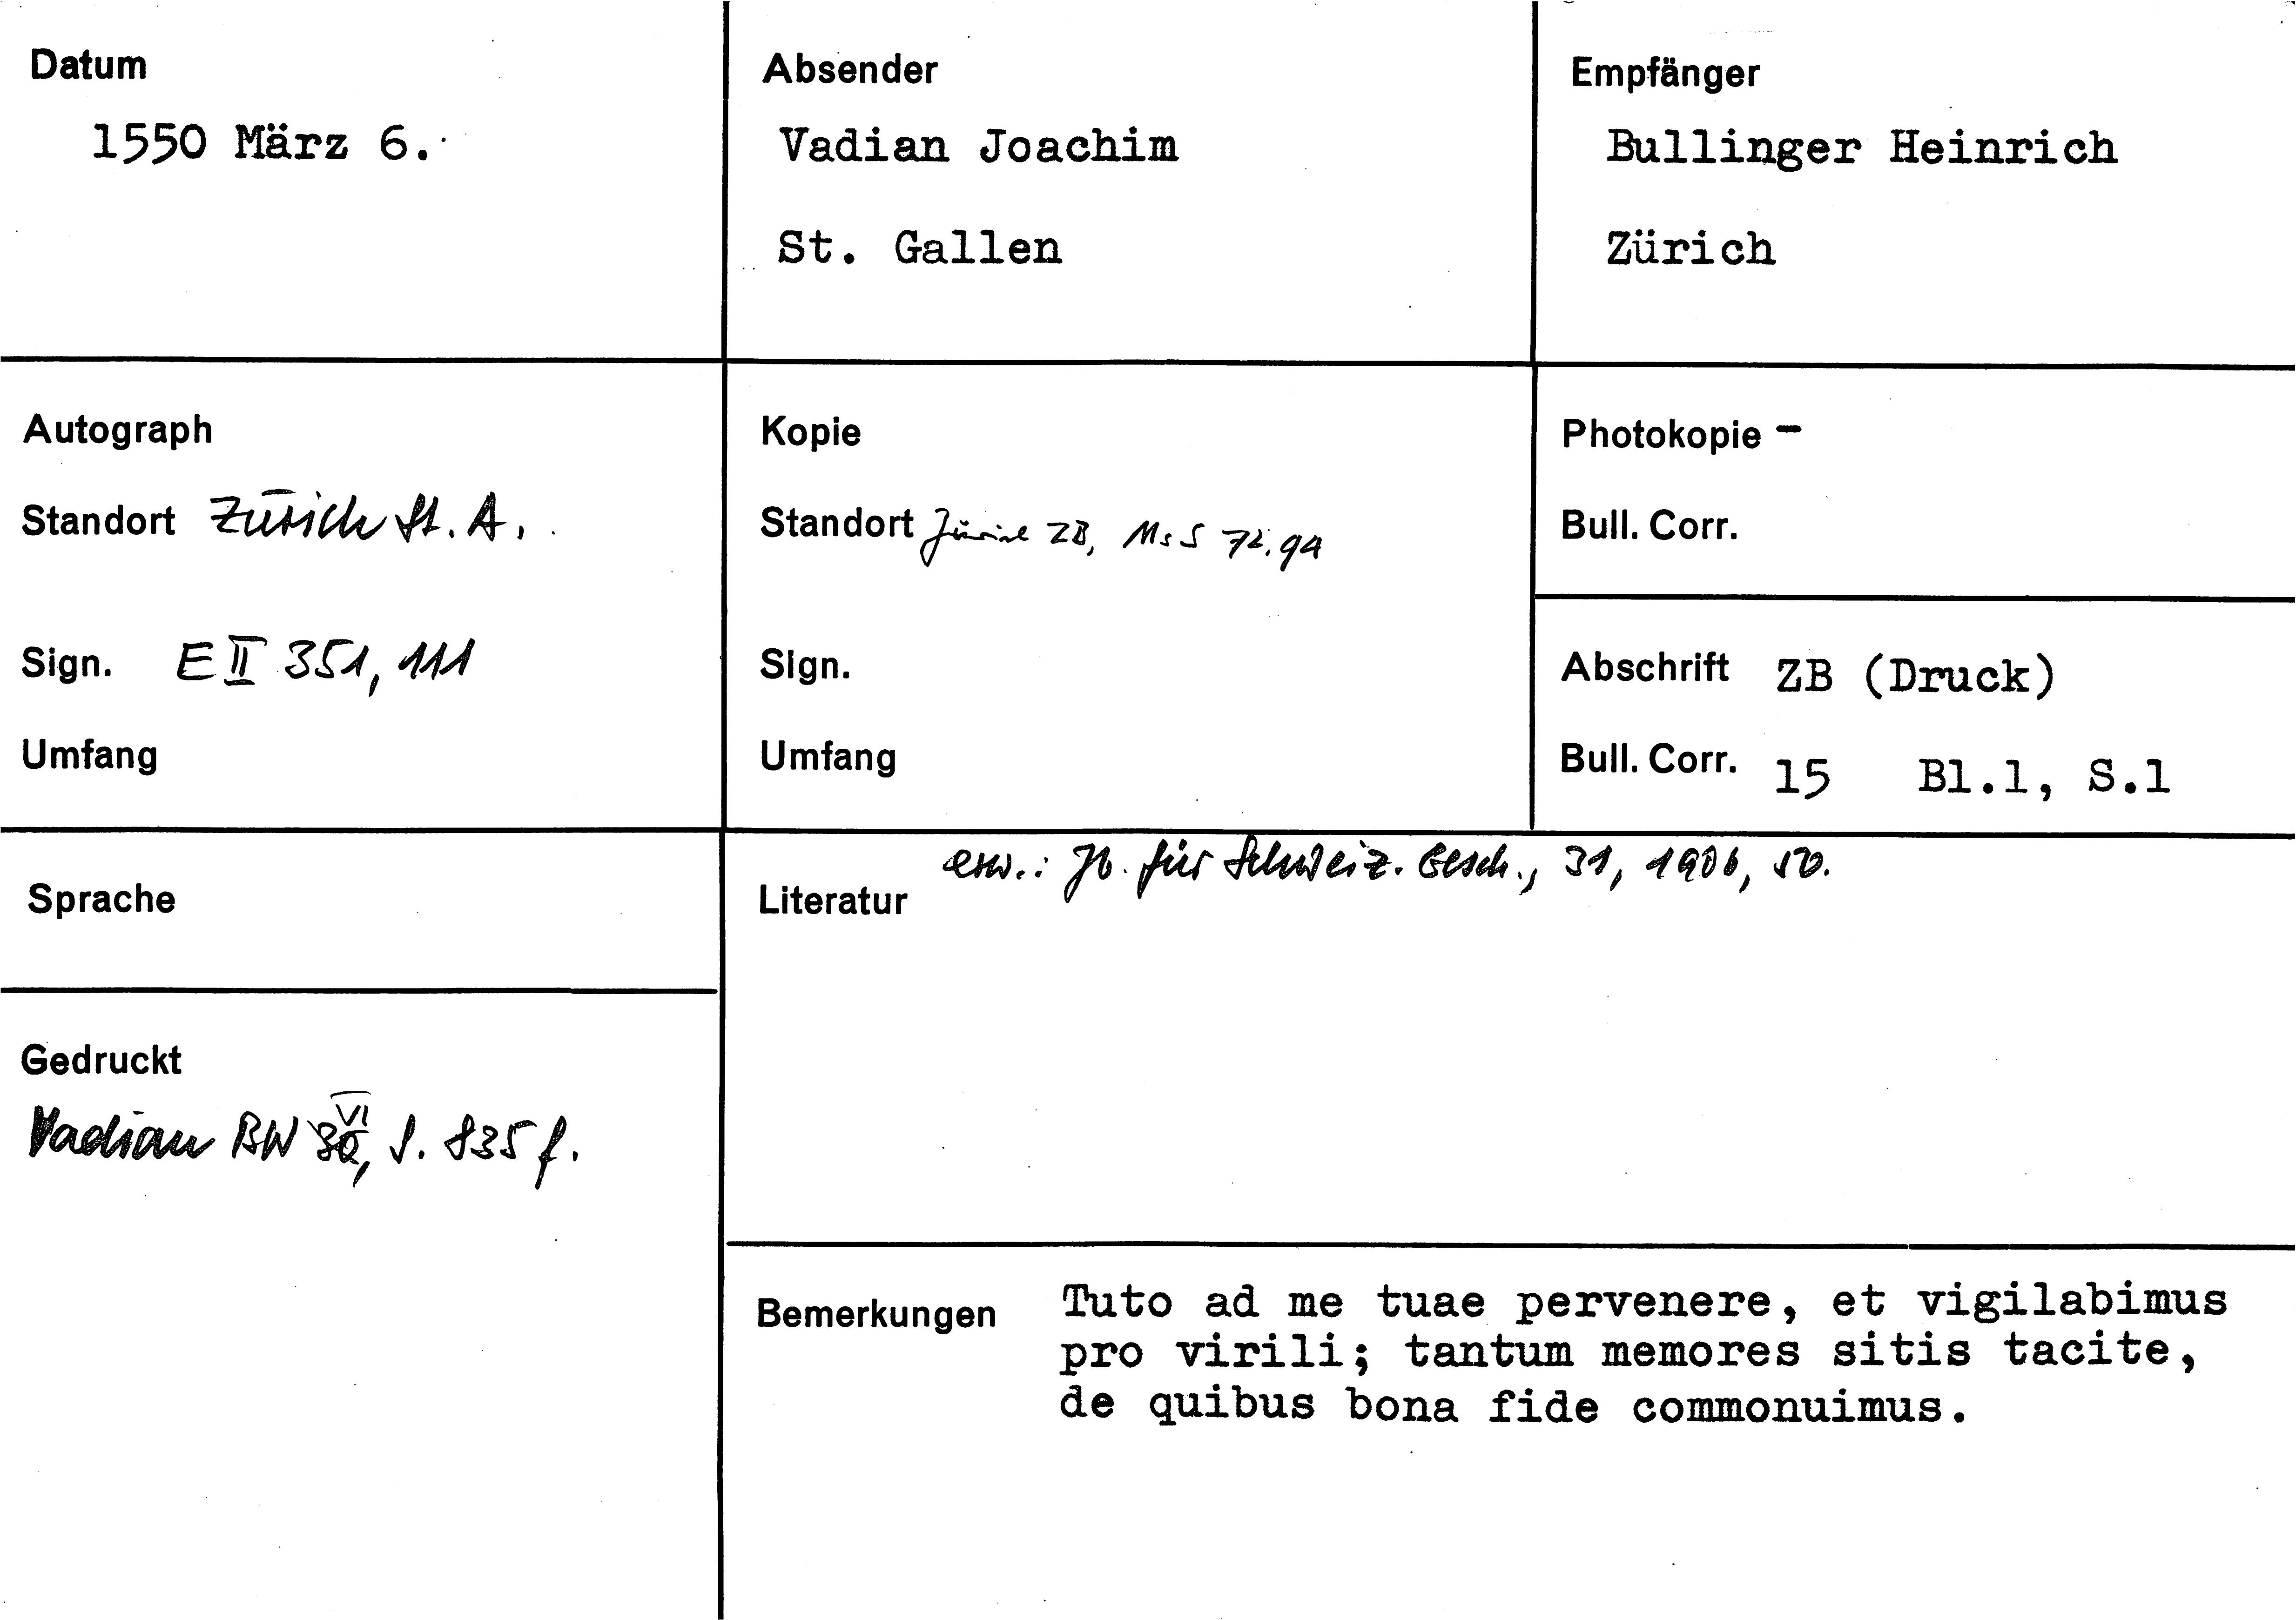 Datum
1550 März 6.
Absender
Vadian Joachim
St. Gallen
Empfänger
Bullinger Heinrich
Zürich
Autograph
Standort Zürich St. A.
Sign. E II 351, 111
Umfang
Kopie
Standort Zürich ZB, Ms S 72.94
Sign.
Umfang
Photokopie -
Bull. Corr.
Abschrift ZB (Druck)
Bull. Corr. 15 Bl.1, S.1
Sprache
Gedruckt
Vadian BW VI, S. 835 f.
Literatur erw.: Jb. für Schweiz. Gesch., 31, 1906, 50.
Bemerkungen Tuto ad me tuae pervenere, et vigilabimus
pro virili; tantum memores sitis tacite,
de quibus bona fide commonuimus.